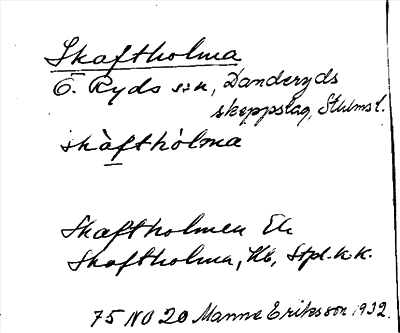 Skaftholma
Ö. Ryds sn, Danderyds
skeppslag, Sthlms l.
skàfthólma
Skaftholmen Ek
Skaftholma, Hb, Stpl. k.k.
75 NO 20 Manne Eriksson 1932.